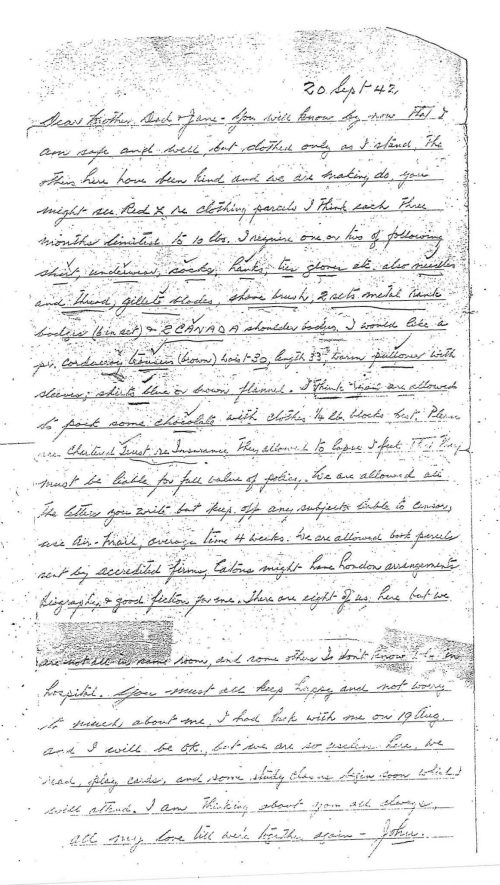 20 Sept 42
Dear Mother, Dad & Jane - You will know by now that I
am safe and well, but clothed only as I stand, the
others here have been kind and we are making do, you
might see Red X re clothing parcels I think each three
months limited to 10 lbs. I require one or two of following
shirt, underwear, socks, hanks, ties gloves etc. also needles
and thread, gillette blades, shave brush, 2 sets metal rank
badges (6 in set) & 2 CANADA shoulder badges, I would like a
pr. corduroy trousers (brown) waist 30, length 33", warm pullover with
sleeves; shirts blue or brown flannel. I think you are allowed
to pack some chocolate with clothes ¼ lb. blocks best. Please
see Chartered Trust re Insurance they allowed to lapse I feel that they
must be liable for full value of policy. We are allowed all
the letters you write but keep off any subjects liable to censor,
use Air-Mail average time 4 weeks. We are allowed book parcels
sent by accredited firms, Eatons might have London arrangements
Biographies & good fiction for me. There are eight of us here but we
are not all in same room, and some others I don't know in
hospital. You must all keep happy and not worry
to much about me. I had luck with me on 19 Aug.
and I will be OK., but we are so useless here, we
read, play cards, and some study classes begin soon which I
will attend. I am thinking about you all always,
all my love till we're together again - John.